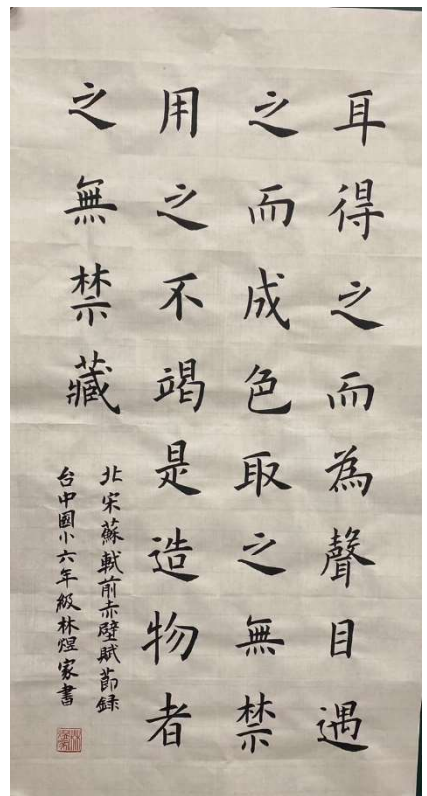 耳得之而為聲目遇
之而成色取之無禁
用之不竭是造物者
之無禁藏
北宋蘇軾前赤壁賦節録
台中國小六年級林煜家書